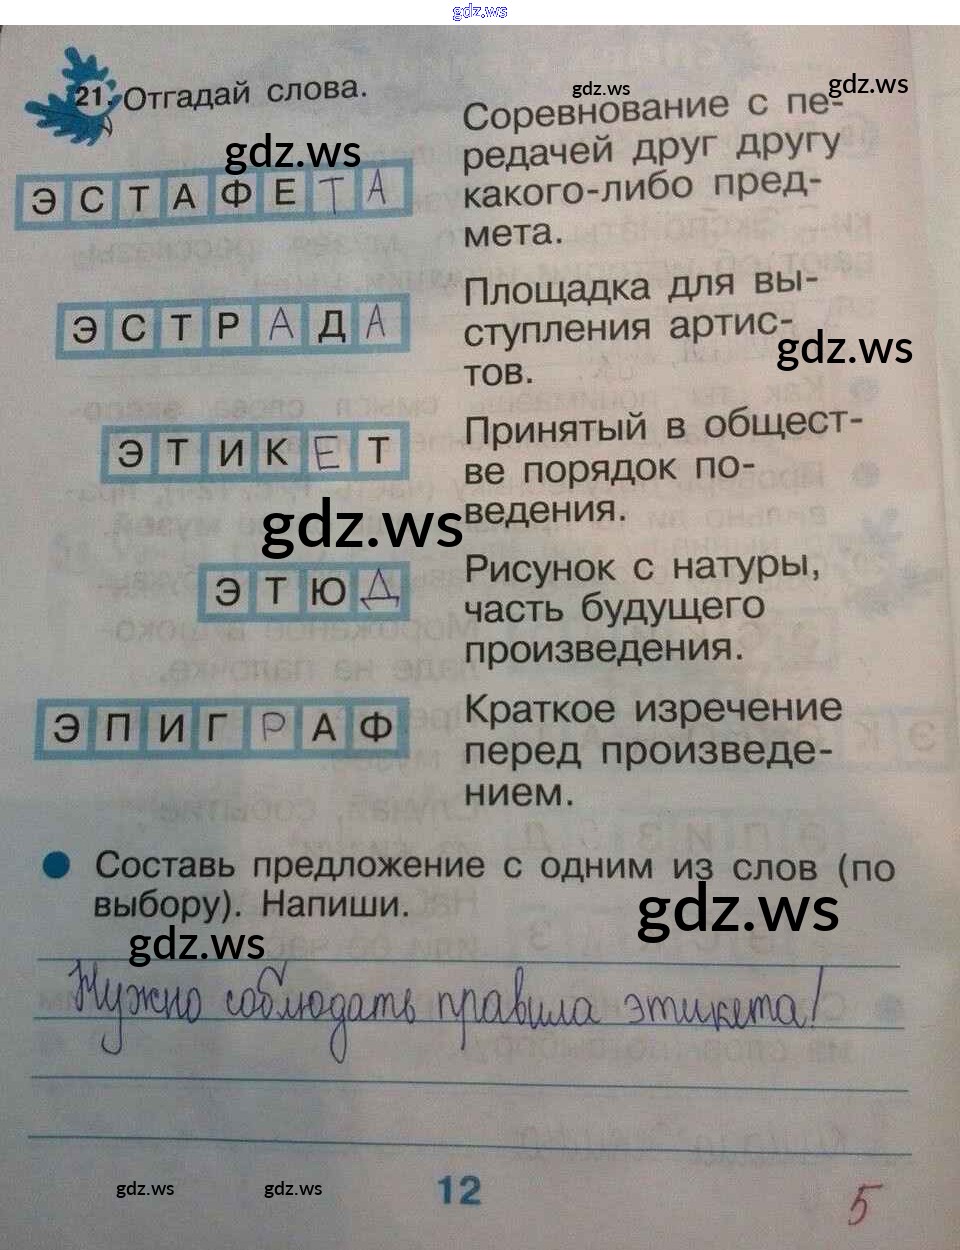 gdz.ws
21. Отгадай слова.
gdz.ws
gdz.ws
gdz.ws
ЭСТАФЕТА
Соревнование с пе-
редачей друг другу
какого-либо пред-
мета.
ЭСТРАДА
Площадка для вы-
ступления артис-
тов.
gdz.ws
ЭТИКЕТ
Принятый в общест-
ве порядок по-
ведения.
gdz.ws
ЭТЮД
Рисунок с натуры,
часть будущего
произведения.
ЭПИГРАФ
Краткое изречение
перед произведе-
нием.
Составь предложение с одним из слов (по
выбору). Напиши.
gdz.ws
gdz.ws
Нужно соблюдать правила этикета!
gdz.ws
gdz.ws
12
5